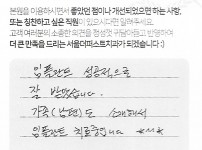 본원을 이용하시면서 좋았던 점이나 개선되었으면 하는 사항,
또는 칭찬하고 싶은 직원이 있으시다면 알려주세요.
고객 여러분의 소중한 의견을 정성껏 귀담아듣고 반영하여
더 큰 만족을 드리는 서울더퍼스트치과가 되겠습니다 :)
임플란트 성공적으로
잘 받았습니다.
가족(남편)도 소개해서
임플란트 치료중입니다 ^^